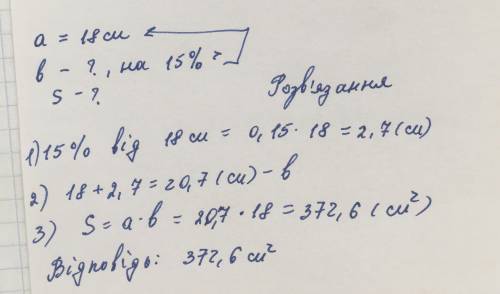 a = 18 см
b - ?, на 15%
S - ?
Розв'язання
1) 15% від 18 см = 0,15 · 18 = 2,7 (см)
2) 18 + 2,7 = 20,7 (см) - b
3) S = a · b = 20,7 · 18 = 372,6 (см²)
Відповідь: 372,6 см²